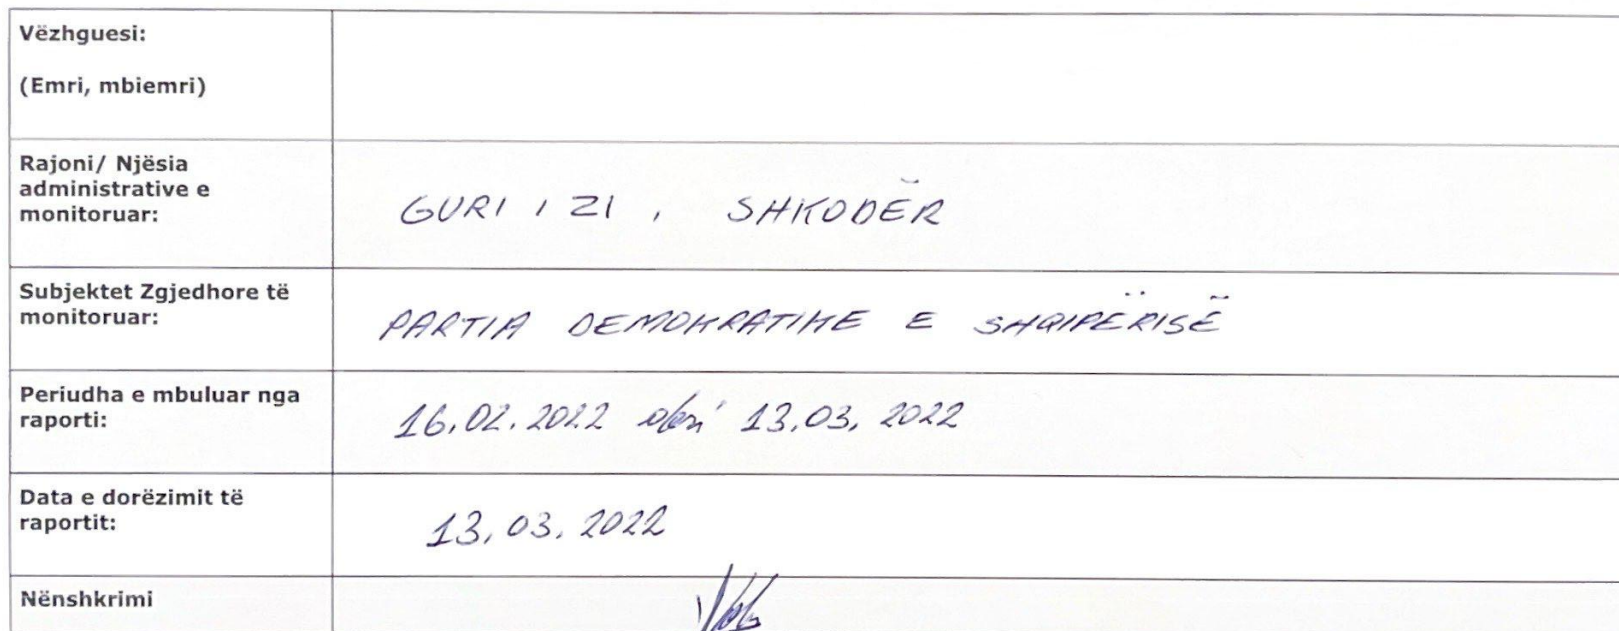 Vëzhguesi:
(Emri, mbiemri)
Rajoni/ Njësia
administrative e
monitoruar:
GURI I ZI, SHKODËR
Subjektet Zgjedhore të
monitoruar:
PARTIA DEMOKRATIKE E SHQIPËRISË
Periudha e mbuluar nga
raporti:
16.02.2022 deri 13.03.2022
Data e dorëzimit të
raportit:
13.03.2022
Nënshkrimi